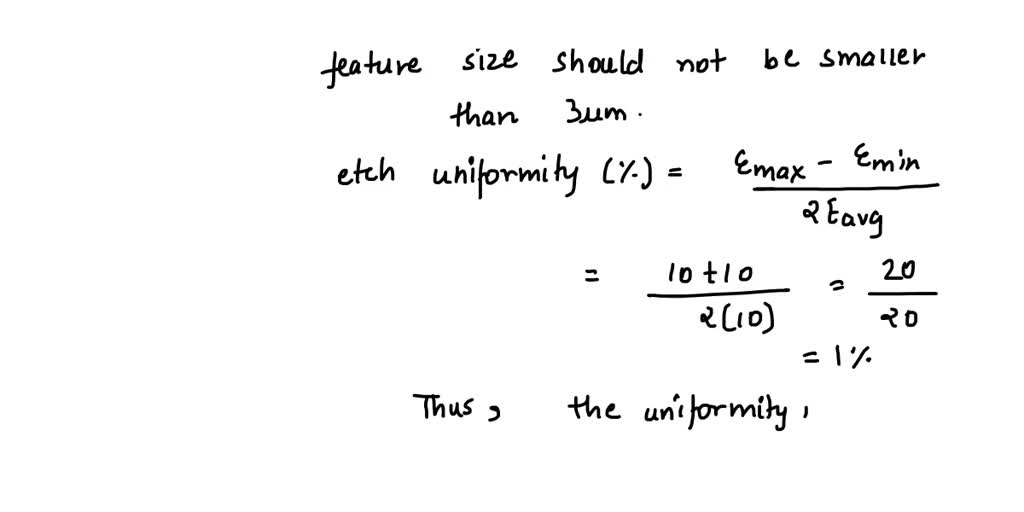 feature size should not be smaller
than 3um.
etch uniformity (%) = Emax - Emin / 2Eavg
= 10+10 / 2(10) = 20 / 20
= 1%
Thus, the uniformity,